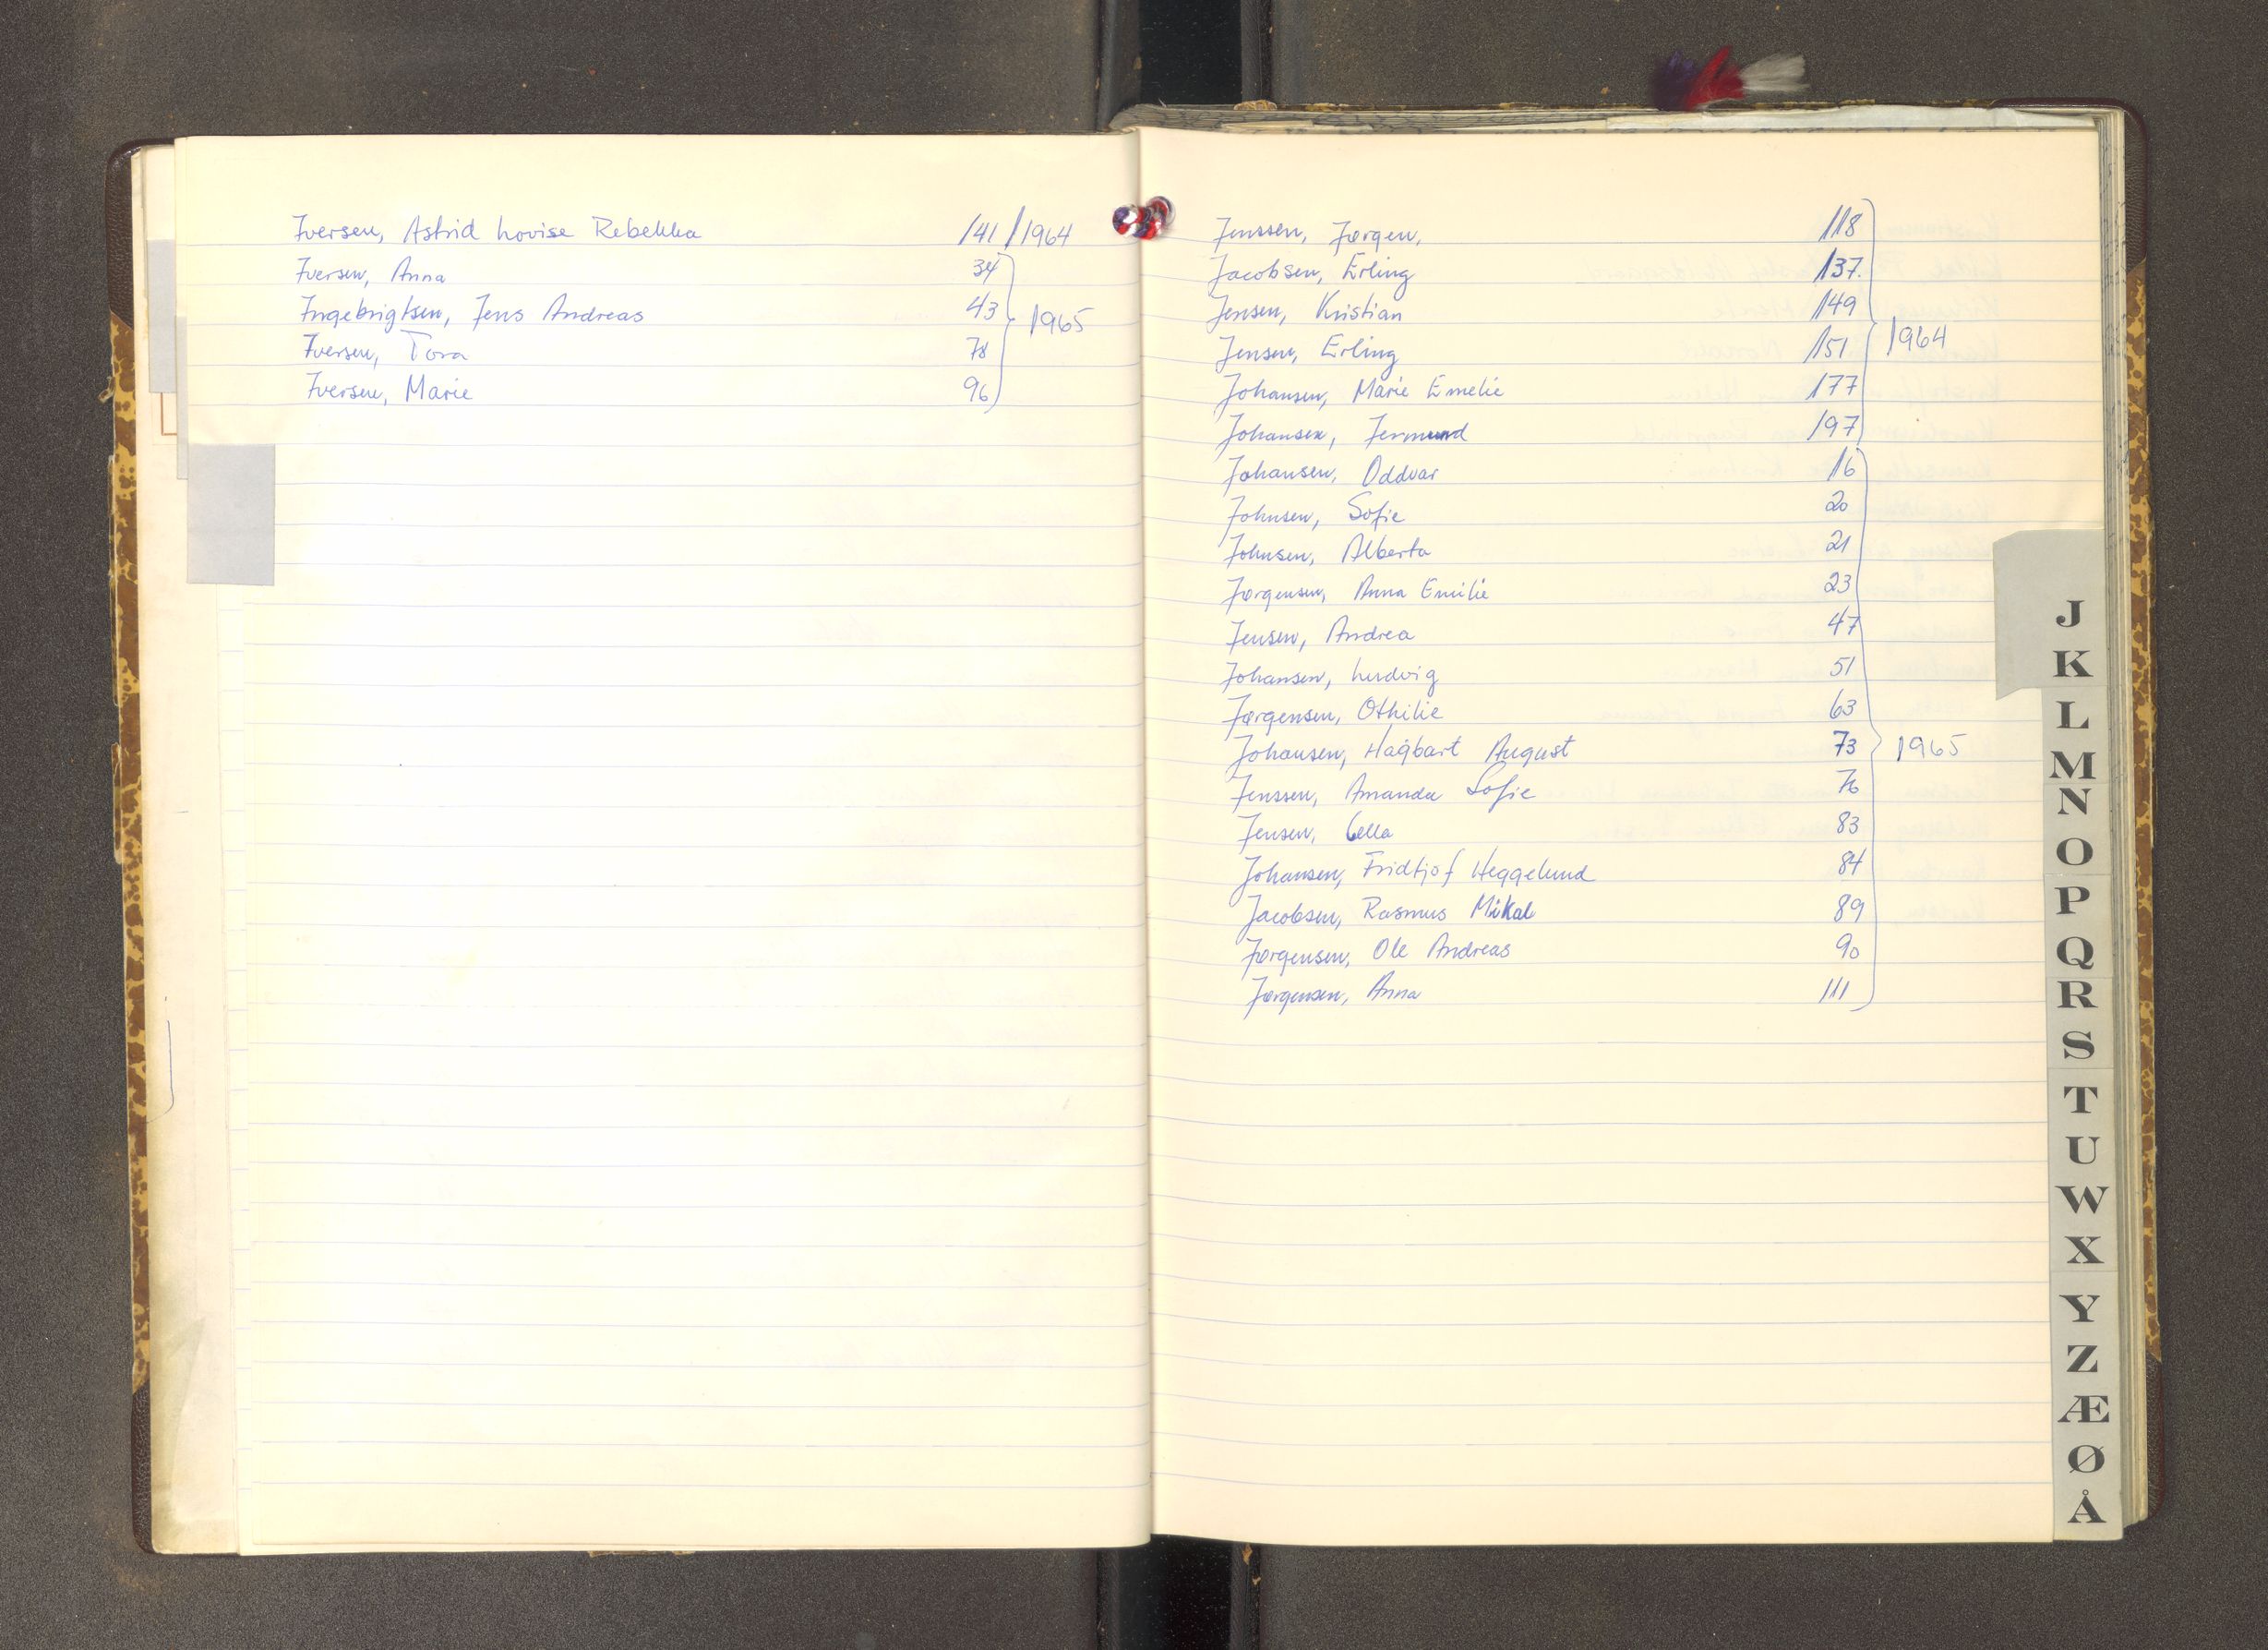 Iversen, Astrid Lovise Rebekka 141/1964
Iversen, Anna 34
Ingebrigtsen, Jens Andreas 43
1965
Iversen, Tora 78
Iversen, Marie 96
Jenssen, Jørgen, 118
Jacobsen, Erling 137.
Jensen, Kristian 149
1964
Jensen, Erling 151
Johansen, Marie Emelie 177
Johansen, Jermund 197
Johansen, Oddvar 16
Johnsen, Sofie 20
Johnsen, Alberta 21
Jørgensen, Anna Emilie 23
Jensen, Andrea 47
Johansen, Ludvig 51
Jørgensen, Othilie 63
Johansen, Hagbart August 73
1965
Jenssen, Amanda Sofie 76
Jensen, Cella 83
Johansen, Fridtjof Heggelund 84
Jacobsen, Rasmus Mikal 89
Jørgensen, Ole Andreas 90
Jørgensen, Anna 111
J
K
L
M
N
O
P
Q
R
S
T
U
W
X
Y
Z
Æ
Ø
Å